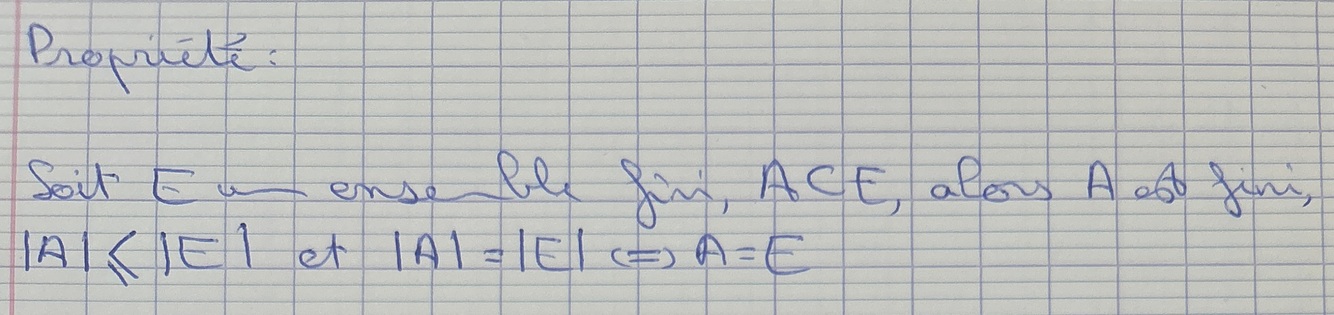 Propriété :
Soit E un ensemble fini, A⊂E, alors A est fini,
|A| ⩽ |E| et |A| = |E| ⟺ A = E